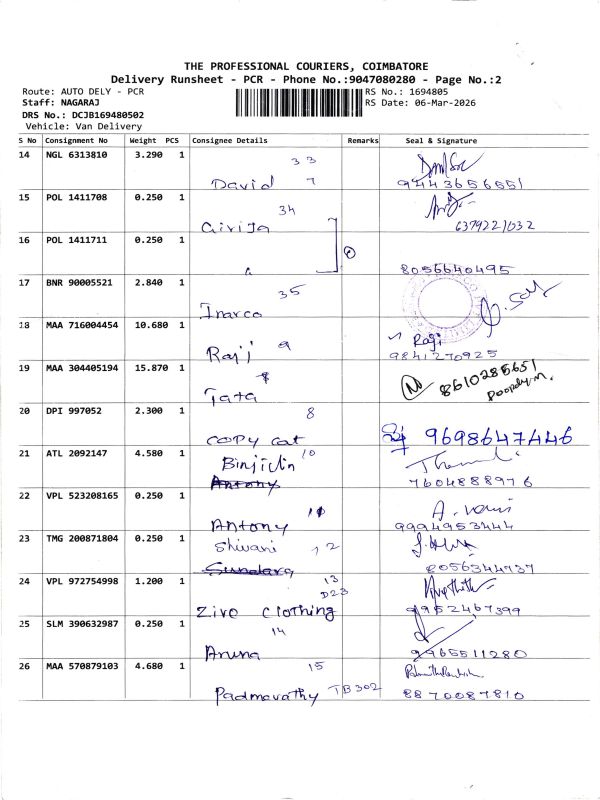 THE PROFESSIONAL COURIERS, COIMBATORE
Delivery Runsheet - PCR - Phone No.:9047080280 - Page No.:2
Route: AUTO DELY - PCR
RS No.: 1694805
Staff: NAGARAJ
RS Date: 06-Mar-2026
DRS No.: DCJB169480502
Vehicle: Van Delivery
S No Consignment No Weight PCS Consignee Details Remarks Seal & Signature
14 NGL 6313810 3.290 1
33
David 7
9443656551
15 POL 1411708 0.250 1
34
Girija
6379221032
16 POL 1411711 0.250 1
8056640495
17 BNR 90005521 2.840 1
35
Inarco
18 MAA 716004454 10.680 1
Raji 9
Raji
9841270925
19 MAA 304405194 15.870 1
Tata
8610285651
20 DPI 997052 2.300 1
8
Copy Cat
9698647446
21 ATL 2092147 4.580 1
10
Antony
7604888976
22 VPL 523208165 0.250 1
Antony
9994953444
23 TMG 200871804 0.250 1
Shivani 12
Sundara
8056344737
24 VPL 972754998 1.200 1
13
D23
Zivo Clothing
9952467399
25 SLM 390632987 0.250 1
14
Aruna
9965511280
26 MAA 570879103 4.680 1
15
Padmavathy TB302
8870087810